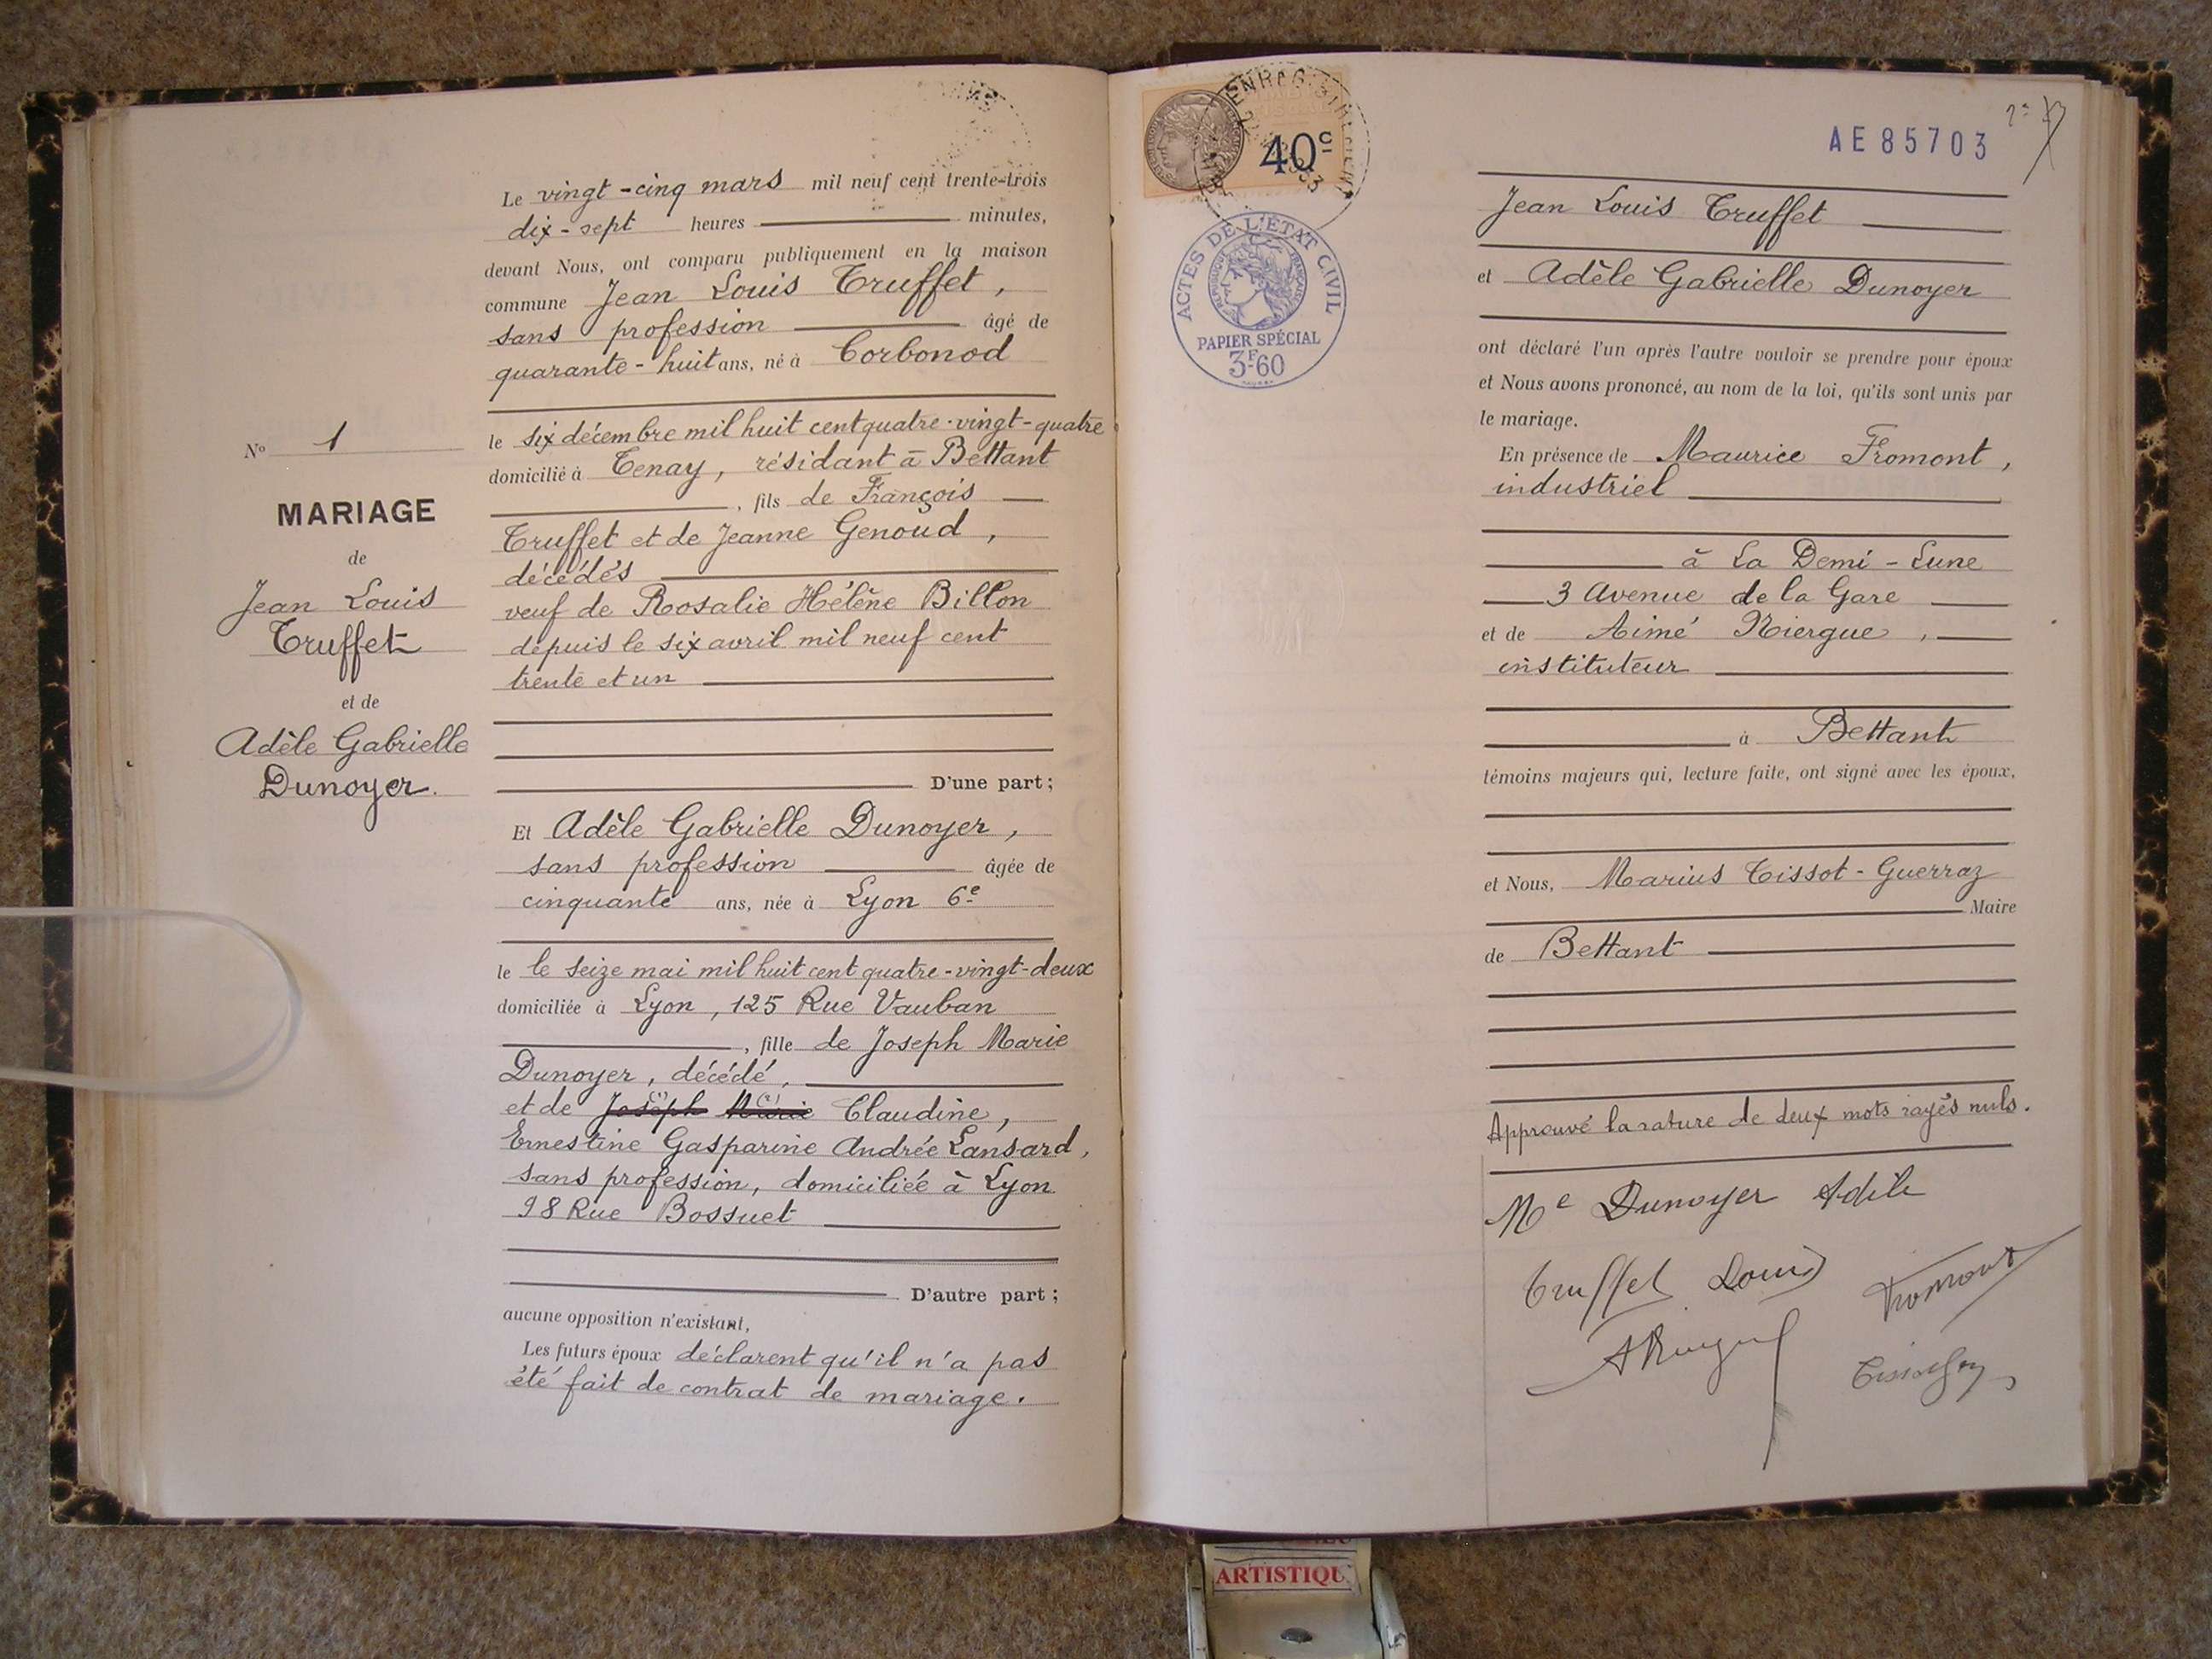 Le vingt-cinq mars mil neuf cent trente-trois
dix-sept heures minutes,
devant Nous, ont comparu publiquement en la maison
commune Jean Louis Truffet,
sans profession âgé de
quarante-huit ans, né à Corbonod
le six décembre mil huit cent quatre-vingt-quatre
domicilié à Tenay, résidant à Bettant
, fils de François
Truffet et de Jeanne Genoud,
décédés
veuf de Rosalie Hélène Billon
depuis le six avril mil neuf cent
trente et un
D'une part;
Et Adèle Gabrielle Dunoyer,
sans profession âgée de
cinquante ans, née à Lyon 6e
le le seize mai mil huit cent quatre-vingt-deux
domiciliée à Lyon, 125 Rue Vauban
, fille de Joseph Marie
Dunoyer, décédé,
et de Joseph (1) Marie (2) Claudine,
Ernestine Gasparine Andrée Lansard,
sans profession, domiciliée à Lyon
98 Rue Bossuet
D'autre part;
aucune opposition n'existant,
Les futurs époux déclarent qu'il n'a pas
été fait de contrat de mariage.
No 1
MARIAGE
de
Jean Louis
Truffet
et de
Adèle Gabrielle
Dunoyer.
40c
ACTES DE L'ÉTAT CIVIL
RÉPUBLIQUE FRANÇAISE
PAPIER SPÉCIAL
3F60
AE85703
Jean Louis Truffet
et Adèle Gabrielle Dunoyer
ont déclaré l'un après l'autre vouloir se prendre pour époux
et Nous avons prononcé, au nom de la loi, qu'ils sont unis par
le mariage.
En présence de Maurice Fromont,
industriel
à La Demi-Lune
3 Avenue de la Gare
et de Aimé Riergue,
instituteur
à Bettant
témoins majeurs qui, lecture faite, ont signé avec les époux,
et Nous, Marius Tissot-Guerraz
Maire
de Bettant
Approuvé la rature de deux mots rayés nuls.
Me Dunoyer Adèle
Truffet Louis
Fromont
ARTISTIQU